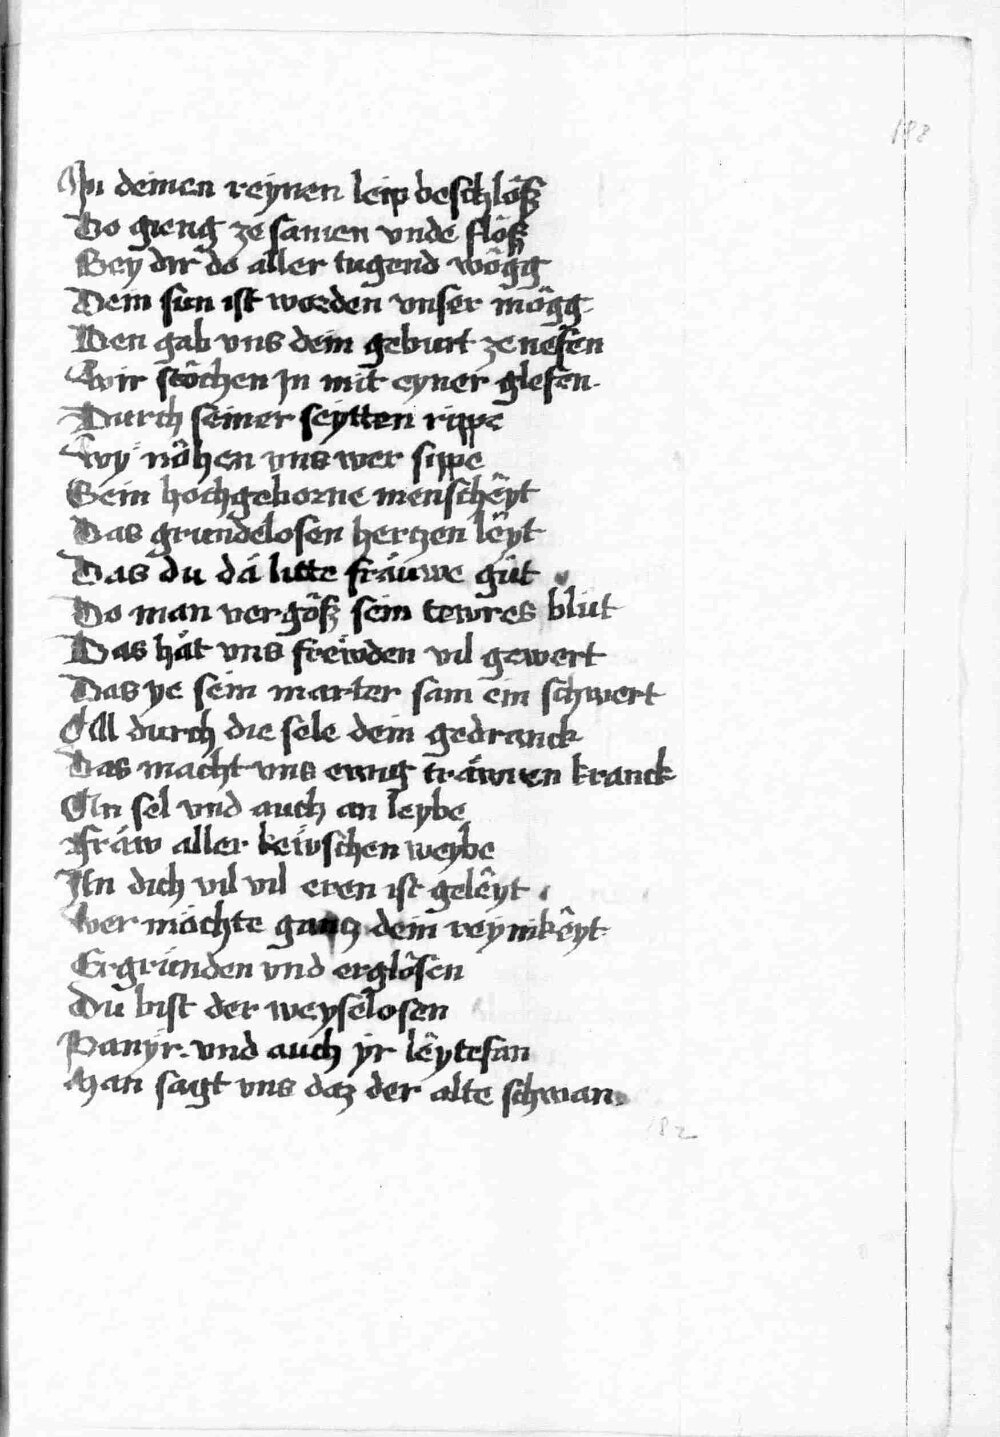 188
In deinen reynen leip beschlôß
Do gieng ze samen vnde flôß
Bey dir do aller tugend wôgg
Dein sun ist worden vnser môgg
Den gab vns dein geburt ze nesen
Wir stôchen jn mit eyner glesen
Durch seiner seytten rippe
Wy nôhen vns wer sippe
Sein hochgeborne menschêyt
Das grundelosen hertzen lêyt
Das du dá litte fráuwe gút
Do man vergôß sein tewres blút
Das hát vns frewden vil gewert
Das ye sein marter sam ein schwert
All durch die sele dein gedranck
Das macht vns ewig tráwren kranck
An sel vnd auch an leybe
Fráw aller kewschen weybe
An dich vil vil eren ist gelêyt
Wer möchte gantz dein reynikêyt
Ergrúnden vnd erglôsen
Du bist der weyselosen
Panyr vnd auch yr lêytesan
Man sagt vns daz der alte schwan
182